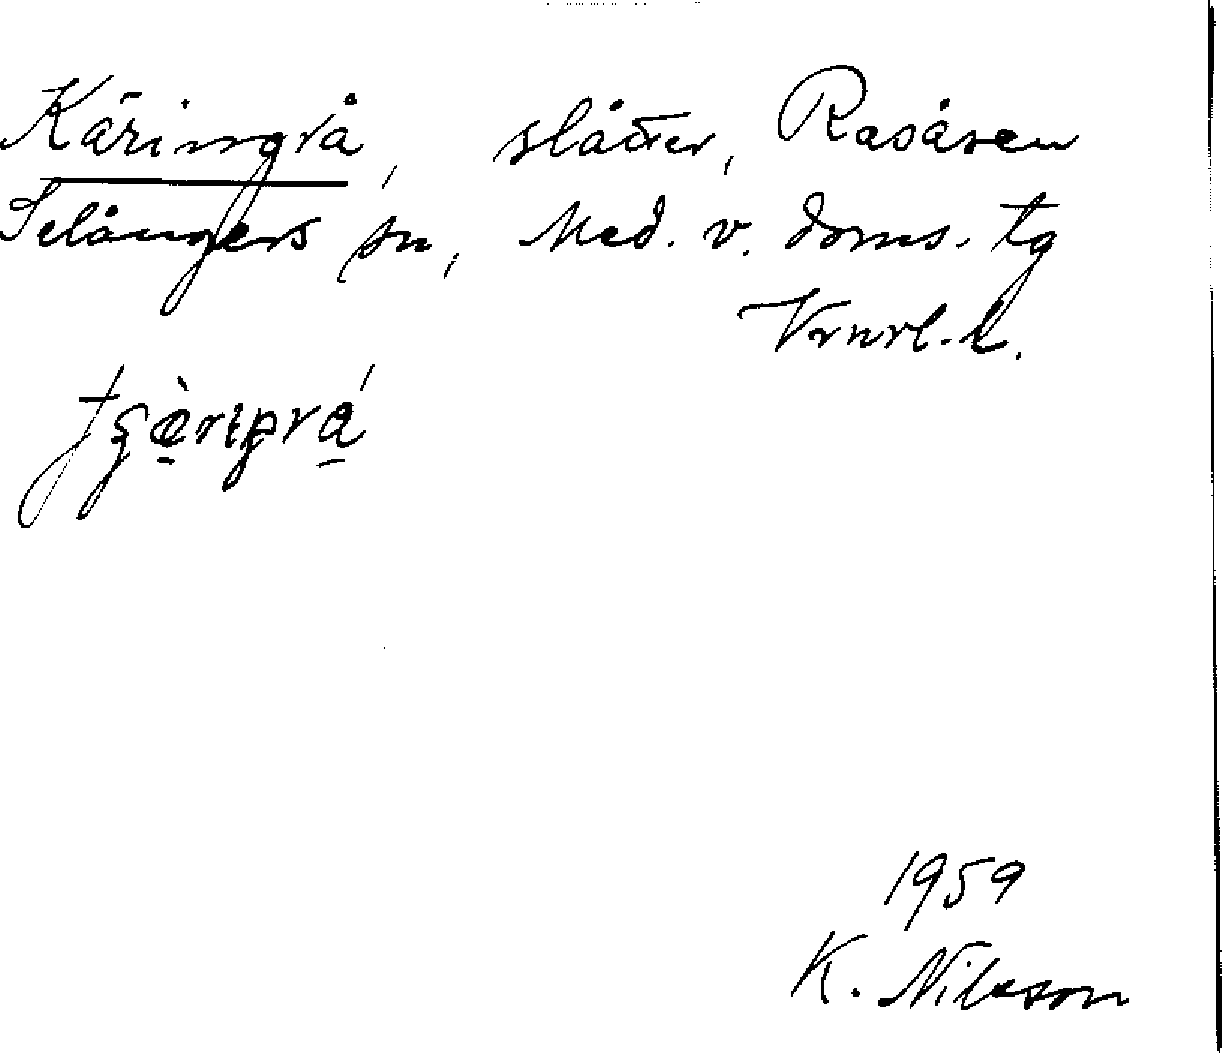 Käringrå, slåtter, Rasåsen
Selångers sn, Med. v. doms. tg
Vrnrl. l.
1959
K. Nilsson